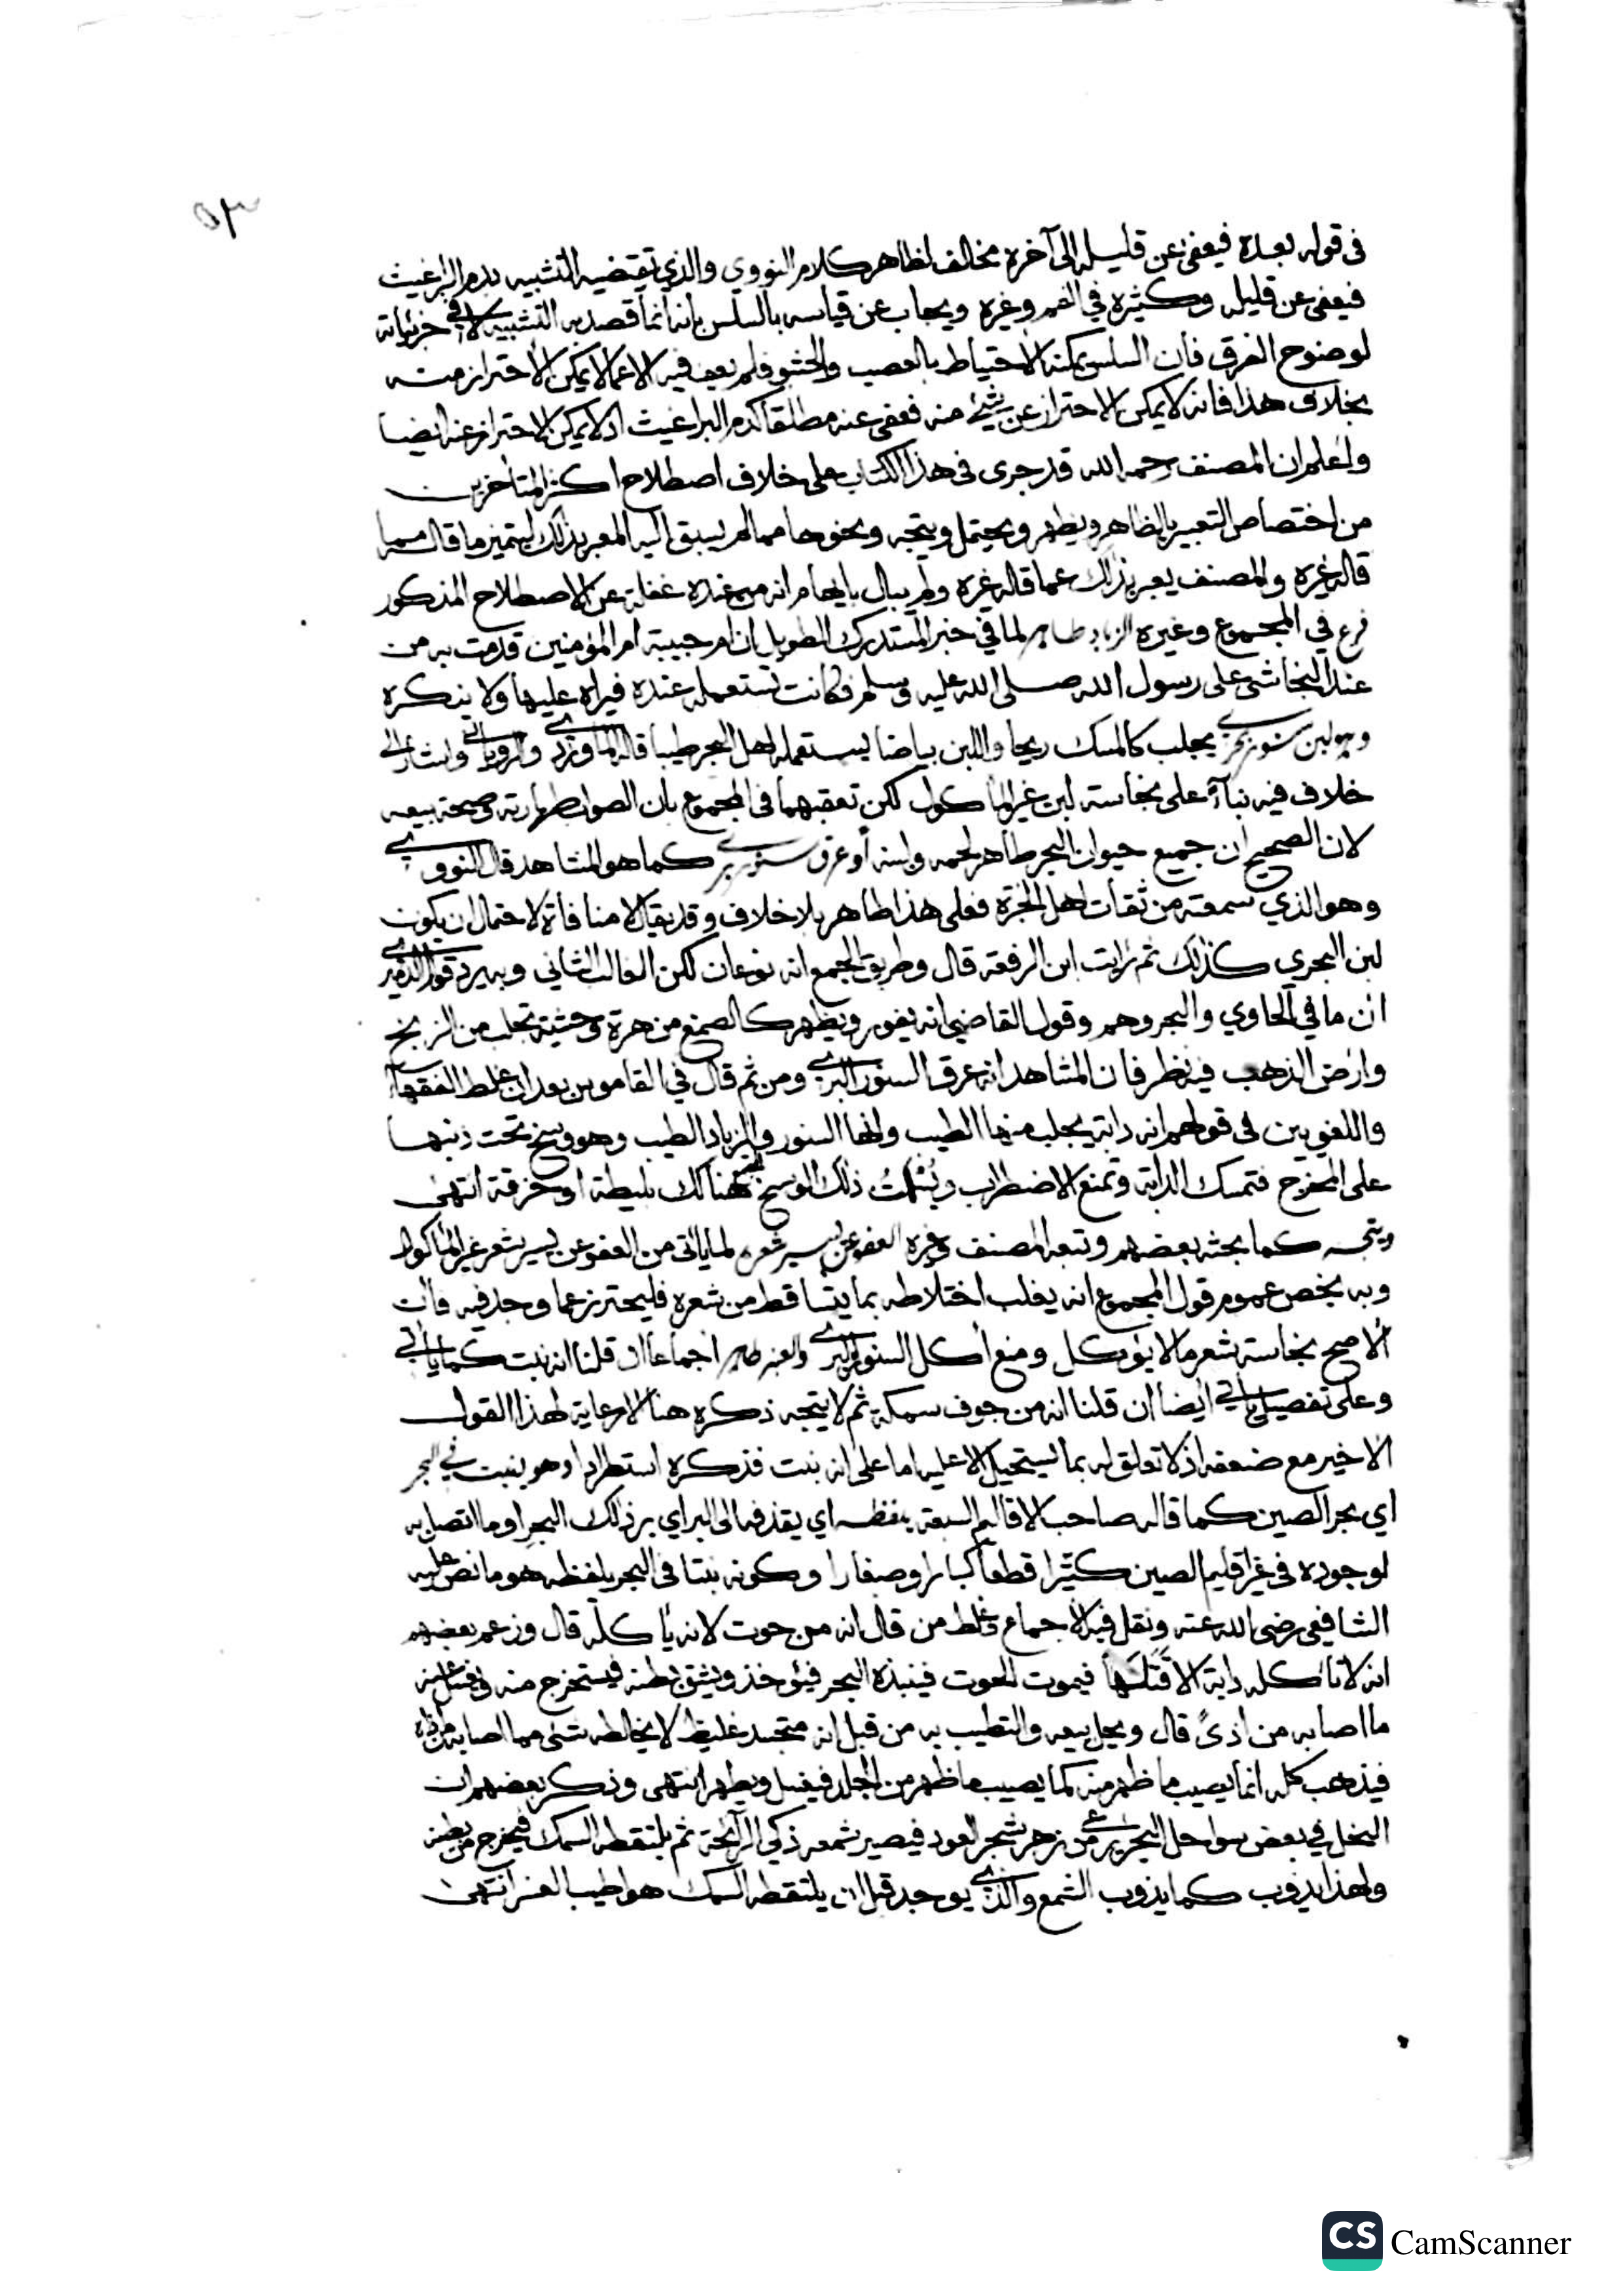 ٥٣
في قوله بعده فيعفى عن قليله إلى آخره مخالف لظاهر كلام النووي والذي تقتضيه التشبيه بدم البراغيث
فيعفى عن قليله وكثيره في الفم وغيره ويجاب عن قياسه بالسلس بانه انما قصد به التشبيه لا في جزئياته
لوضوح الفرق فان السلس يمكنه الاحتياط بالعصب والحشو فلم يعف فيه الا عما لا يمكن الاحتراز منه
بخلاف هذا فانه لا يمكن الاحتراز عن شيء منه فعفى عنه مطلقا كدم البراغيث اذ لا يمكن الاحتراز عنه ايضا
واعلم ان المصنف رحمه الله قد جرى في هذا الكتاب على خلاف اصطلاح اكثر المتاخرين
من اختصاص التعبير بالظاهر ويظهر ويحتمل ويتجه ونحوها مما لم يسبق اليه المعبر بذلك ليتميز ما قاله مما
قاله غيره والمصنف يعبر بذلك عما قاله غيره ولم يبال بايهام انه من عنده غفلة عن الاصطلاح المذكور
فرع في المجموع وغيره الزباد طاهر لما في خبر المستدرك الطويل ان ام حبيبة ام المؤمنين قدمت به من
عند النجاشي على رسول الله صلى الله عليه وسلم فكانت تستعمله عنده فيراه عليها ولا ينكره
وهو لبن سنور بحري يجلب كالمسك ريحا واللبن بياضا يستعمله اهل البحر طيبا قاله الماوردي والروياني واشار الى
خلاف فيه بنآء على نجاسة لبن غير المأكول لكن تعقبهما في المجموع بان الصواب طهارته وصحة بيعه
لان الصحيح ان جميع حيوان البحر طاهر لحمه ولبنه أو عرق سنور بري كما هو المشاهد قال النووي
وهو الذي سمعته من ثقات اهل الخبرة فعلى هذا طاهر بلا خلاف وقد يقال لا منافاة لاحتمال ان يكون
لبن البحري كذلك ثم رايت ابن الرفعة قال وطريق الجمع انه نوعان لكن الغالب الثاني وبه يرد قول الدميري
ان ما في الحاوي والبحر وهم وقول القاضي انه يفور ويظهر كالصمغ من هرة وحشية تجلب من الزنج
وارض الذهب فيه نظر فان المشاهد انه عرق السنور البري ومن ثم قال في القاموس بعد ان غلط الفقهاء
واللغويين في قولهم انه دابة يجلب منها الطيب وانها السنور والزباد الطيب وهو وسخ تحت ذنبها
على المخرج فتمسك الدابة وتمنع الاضطراب ويُسْلَتُ ذلك الوسخ هنالك بليطة او خرقة انتهى
ويتجه كما بحثه بعضهم وتبعه المصنف وغيره العفو عن يسير شعره لما ياتي من العفو عن يسير شعر غير المأكول
وبه يخص عموم قول المجموع انه يغلب اختلاطه بما يتساقط من شعره فليحترز عما وجد فيه فان
الاصح نجاسة شعر ما لا يؤكل ومنع أكل السنور البري والعنبر طاهر اجماعا ان قلنا انه نبت كما ياتي
وعلى تفصيل ياتي ايضا ان قلنا انه من جوف سمكة ثم لا يتجه ذكره هنا الا رعاية لهذا القول
الاخير مع ضعفه اذ لا تعلق له بما يستحيل الا عليه اما على انه نبت فذكره استطرادا وهو ينبت في البحر
اي بحر الصين كما قاله صاحب الاقاليم السبعة يلفظه اي يقذفه الى البر اي بر ذلك البحر او ما اتصل به
لوجوده في غير اقليم الصين كثيرا قطعا كبارا وصغارا وكونه نبتا في البحر يلفظه هو ما نص عليه
الشافعي رضي الله عنه ونقل فيه الاجماع وغلط من قال انه من حوت لانه يأكله قال وزعم بعضهم
انه لا تأكله دابة الا قَتَلَها فيموت الحوت فينبذه البحر فيؤخذ ويشق بطنه فيستخرج منه ويغسل عنه
ما اصابه من اذىً قال ويحل بيعه والتطيب به من قبل انه متجسد غليظ لا يخالطه شيء مما اصابه من اذاه
فيذهب كله انما يصيب ما ظهر منه كما يصيب ما ظهر من الجلد فيغسل ويطهر انتهى وذكر بعضهم ان
النحل في بعض سواحل البحر يرعى من زهر شجر العود فيصير شمعه ذكي الرائحة ثم يلتقطه السمك فيخرج من بطنه
ولهذا يذوب كما يذوب الشمع والذي يوجد قبل ان يلتقطه السمك هو اطيب العنبر انتهى
CS CamScanner